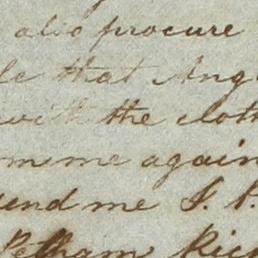 also procure
that Ang
with the cloth
again
send me S.
Pelham Rich